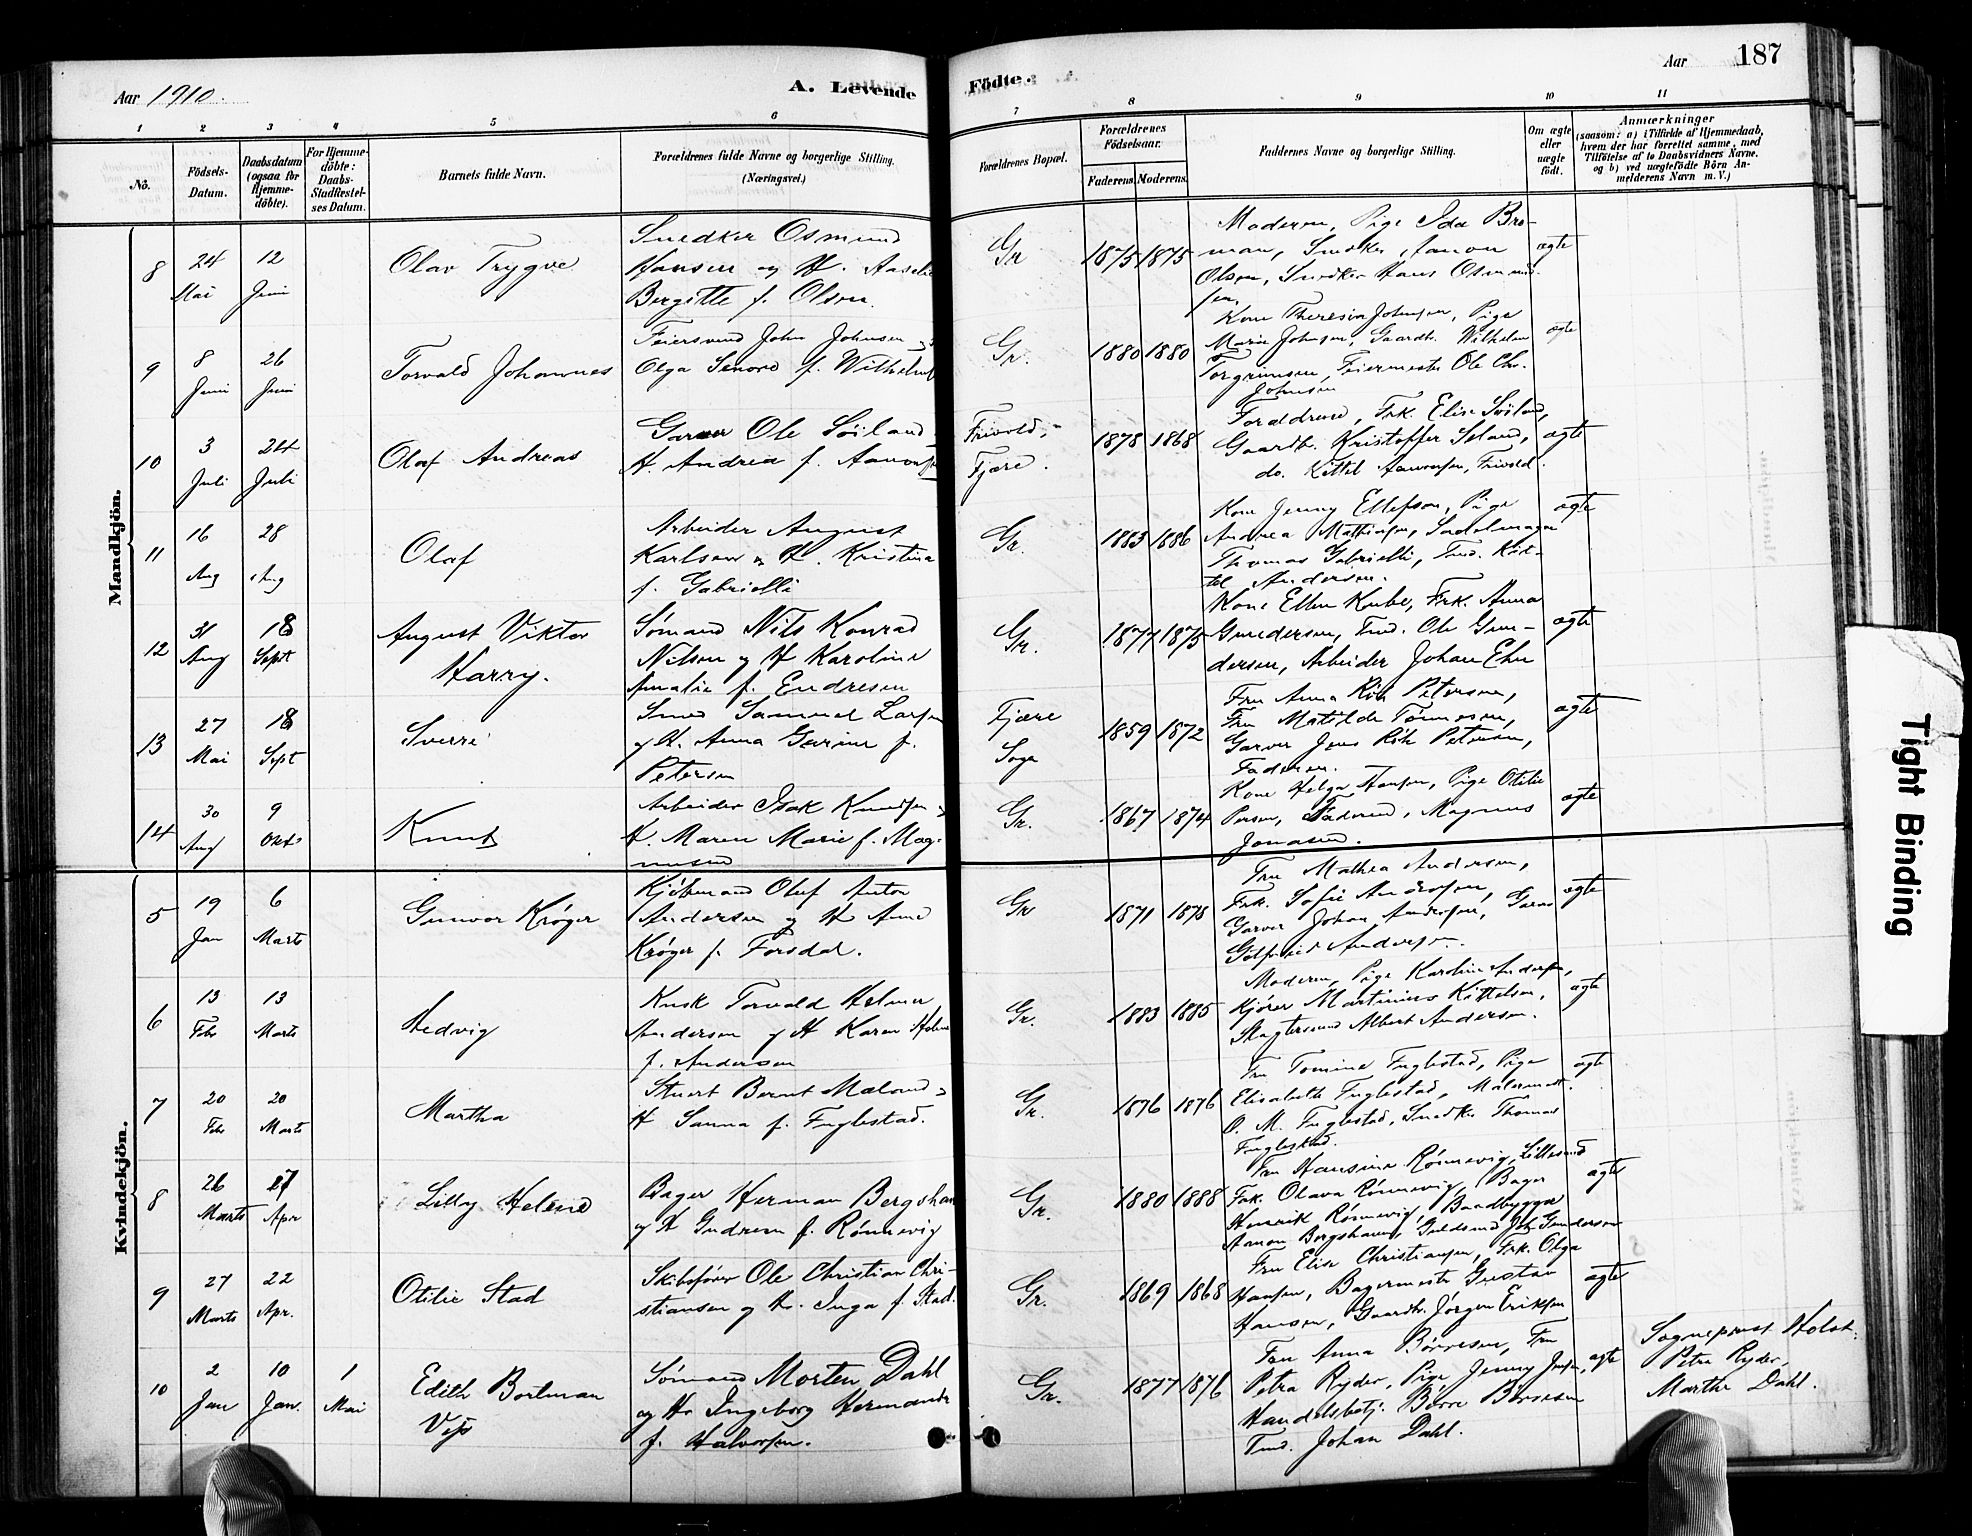 Aar 1910.
A. Levende
Födte.
Aar
187
1 2 3 4 5 6 7 8 9 10 11
No.
Födsels-
Datum.
Daabsdatum
(ogsaa for
Hjemme-
döbte).
For Hjemme-
döbte:
Daabs-
Stadfæstel-
ses Datum.
Barnets fulde Navn.
Forældrenes fulde Navne og borgerlige Stilling.
(Næringsvei.)
Forældrenes Bopæl.
Forældrenes
Födselsaar.
Faderens. Moderens.
Faddernes Navne og borgerlige Stilling.
Om ægte
eller
uægte
födt.
Anmærkninger
(saasom: a) i Tilfælde af Hjemmedaab,
hvem der har forrettet samme, med
Tilföielse af to Daabsvidners Navne.
og b) ved uægtefödte Börn An-
melderens Navn m. V.)
Mandkjön.
8
24 Mai
12 Juni
Olav Trygve
Snedker Osmund
Hansen og H. Aaselie
Bergitte f. Olsen.
Gr
1875 1875
Moderen, Pige Ida Bro-
man, Snedker Aanon
Olsen, Snedker Hans Osmund-
sen.
ægte
9
8 Juni
26 Juni
Torvald Johannes
Feiersvend John Johnsen
Olga Senore f. Wilhelms
Gr.
1880 1880
Kone Theresia Johnsen, Pige
Marie Johnsen, Gaardb. Wilhelm
Torgrimsen, Feiermester Ole Chr.
Johnsen
ægte
10
3 Juli
24 Juli
Olaf Andreas
Garver Ole Söiland
H. Andrea f. Aanonsen
Frivold,
Fjære.
1878 1868
Forældrene, Frk. Elise Söiland,
Gaardb. Kristoffer Seland,
do. Kittel Aanonsen, Frivold.
ægte
11
16 Aug
28 Aug
Olaf
Arbeider August
Karlsen og H. Kristina
f. Gabrielli
Gr.
1883 1886
Kone Jenny Ellefsen, Pige
Andrea Mathisen, Sadelmager
Thomas Gabrielli, Tmd. Kit-
tel Andersen.
ægte
12
31 Aug
18 Sept
August Viktor
Harry.
Sømand Nils Konrad
Nilsen og H Karoline
Amalie f. Endresen
Gr.
1877 1875
Kone Ellen Kube, Frk. Anna
Gundersen, Tmd. Ole Gun-
dersen, Arbeider Johan Ehn
ægte
13
27 Mai
18 Sept
Sverre
Smed Samuel Larsen
og H. Anna Gurine f.
Petersen
Fjære
Sogn
1859 1872
Fru Anna Röh Petersen,
Fru Matilde Tönnesen,
Garver Jens Röh Petersen,
Faderen.
ægte
14
30 Aug
9 Okt
Knut
Arbeider Isak Knudsen
H. Maren Marie f. Mag-
nusen
Gr.
1867 1874
Kone Helga Hansen, Pige Otilie
Persen, Faderen, Magnus
Jonasen.
ægte
Kvindekjön.
5
19 Jan
6 Marts
Gunvor Krøger
Kjöbmand Oluf Anton
Andersen og H Anne
Krøger f. Forsdal.
Gr
1871 1878
Fru Mathea Andersen,
Frk. Sofie Andersen,
Garver Johan Andersen, Garver
Gotfried Andersen.
ægte
6
13 Febr
13 Marts
Hedvig
Kusk Torvald Helmer
Andersen og H Karen Helene
f. Andersen
Gr.
1883 1885
Moderen, Pige Karoline Andersen,
Kjörer Martinius Kittelsen,
Slagtersvend Albert Andersen.
ægte
7
20 Febr
20 Marts
Martha
Stuert Bernt Møland
H Sanna f. Fuglestad.
Gr.
1876 1876
Fru Tomine Fuglestad, Pige
Elisabeth Fuglestad, Malermest.
O. M. Fuglestad, Snedker Thomas
Fuglestad.
ægte
8
26 Marts
27 Apr
Lilly Helene
Bager Herman Bergshaven
og H Gudrun f. Rønnevig
Gr.
1880 1888
Fru Hansine Rønnevig, Lillesand
Frk. Olava Rønnevig, Bager
Henrik Rønnevig, Baadbygger
Aanon Bergshaven, Guldsmed Joh. Gundersen
ægte
9
27 Marts
22 Apr.
Otilie Stad
Skibsfører Ole Christian Chri-
stiansen og H. Inga f. Stad.
Gr.
1869 1868
Fru Elise Christiansen, Frk. Olga
Hansen, Bagermester Gustav
Hansen, Gaardb. Jørgen Eriksen
ægte
10
2 Jan
10 Jan.
1 Mai
Edith Bortman
Vejs
Sømand Morten Dahl
og H. Ingeborg Hermande
f. Halvorsen.
Gr.
1877 1876
Fru Anna Börresen, Fru
Petra Ryder, Pige Jenny Jensen,
Handelsbetj. Börre Börresen
Tmd. Johan Dahl.
ægte
Sogneprest Holst.
Petra Ryder,
Marthe Dahl.
Tight Binding